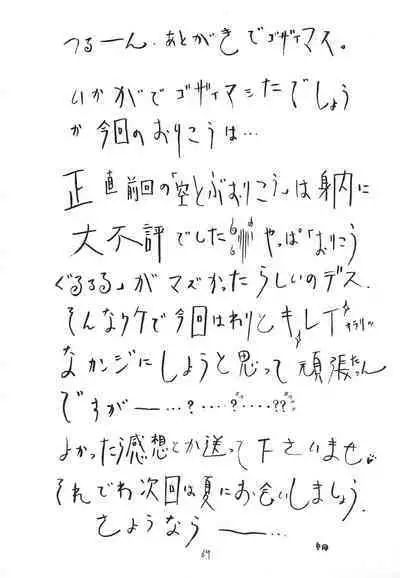 つるーん、あとがきでゴザイマス。
いかがでゴザイマシたでしょう
か 今回のおりこうは…
正直前回の「空とぶおりこう」は身内に
大不評でした やっぱ「おりこう
ぐるるる」がマズかったらしいのデス、
そんなワケで今回はわりとキレイ キラリッ
なカンジにしようと思って頑張たん
ですが——…?‥‥?‥‥??
よかったら感想とか送って下さいませ
それでわ次回は夏にお会いしましょう、
さようなら———…
69